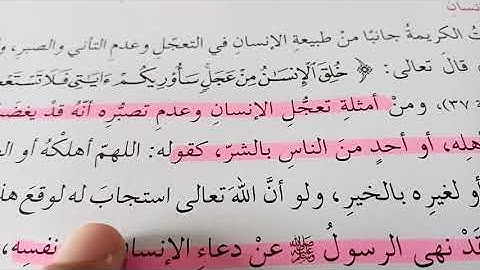 إنسانِ
تُ الكريمةُ جانبًا منْ طبيعةِ الإنسانِ في التعجّلِ وعدمِ التأني والصبرِ، و
قالَ تعالى: ﴿ خُلِقَ ٱلْإِنسَٰنُ مِنْ عَجَلٍۢ سَأُو۟رِيكُمْ ءَايَٰتِى فَلَا تَسْتَعْجِ
٣٧)، ومنْ أمثلةِ تعجُّلِ الإنسانِ وعدمِ تصبّرِه أنّهُ قدْ يغضبُ
أهلِه، أو أحدٍ منَ الناسِ بالشرّ، كقوله: اللهمّ أهلكْهُ أو ال
أو لغيرِه بالخيرِ، ولو أنَّ اللهَ تعالى استجابَ له لوقعَ هذ
قدْ نهى الرسولُ ﷺ عنْ دعاءِ الإنسان نفسِه،